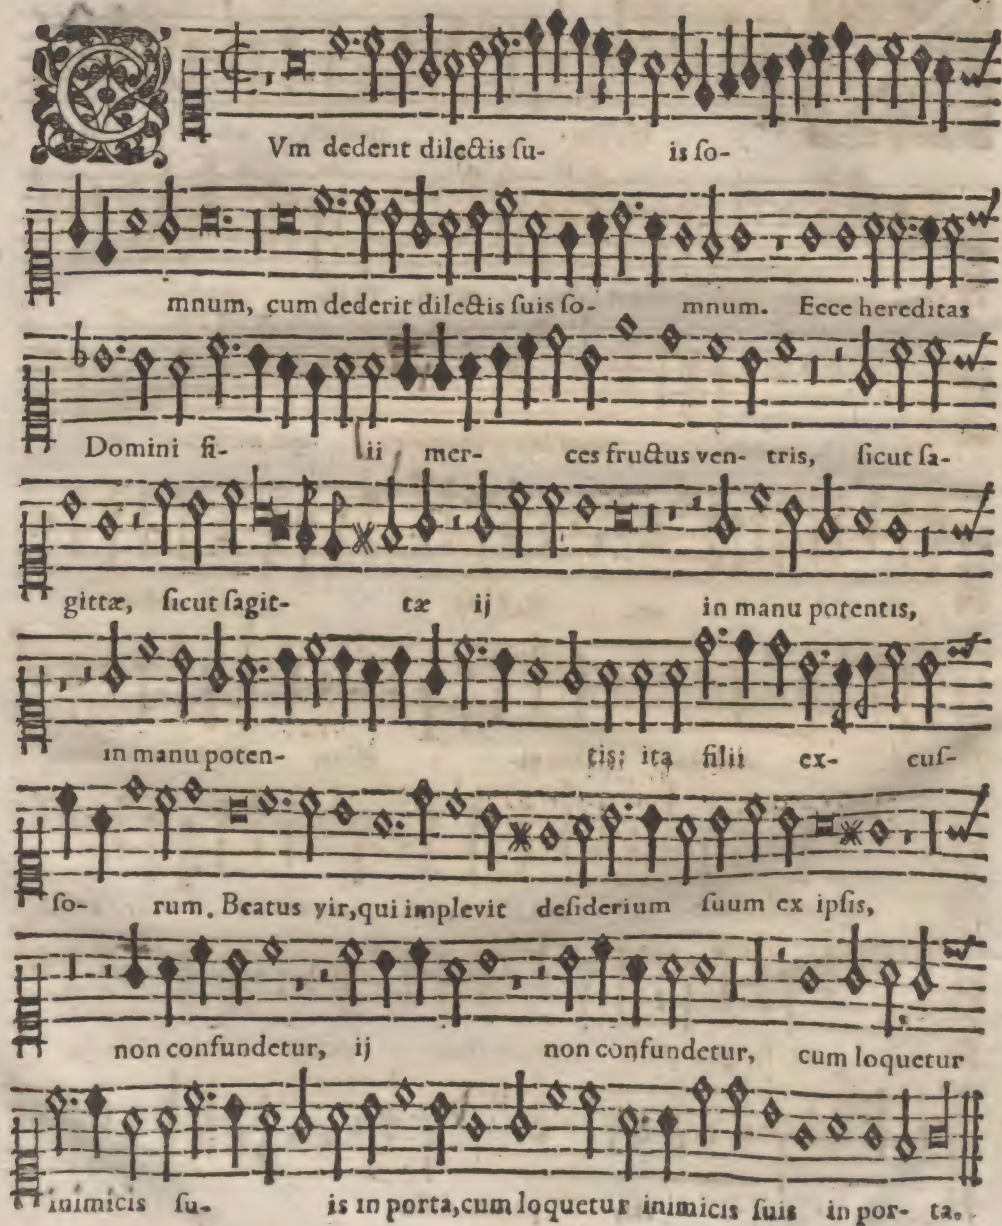 CVm dederit dilectis ſu- is ſo-
mnum, cum dederit dilectis ſuis ſo- mnum. Ecce hereditas
Domini fi- lii mer- ces fructus ven- tris, ſicut ſa-
gittæ, ſicut ſagit- tæ ij in manu potentis,
in manu poten- tis: ita filii ex- cuſ-
ſo- rum. Beatus vir, qui implevit deſiderium ſuum ex ipſis,
non confundetur, ij non confundetur, cum loquetur
inimicis ſu- is in porta, cum loquetur inimicis ſuis in por- ta.